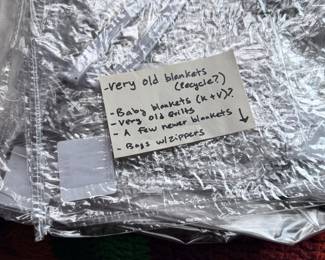 -very old blankets
(recycle?)
- Baby blankets (K+V)?
- Very old Quilts
- A few newer blankets ↓
- Bags w/zippers